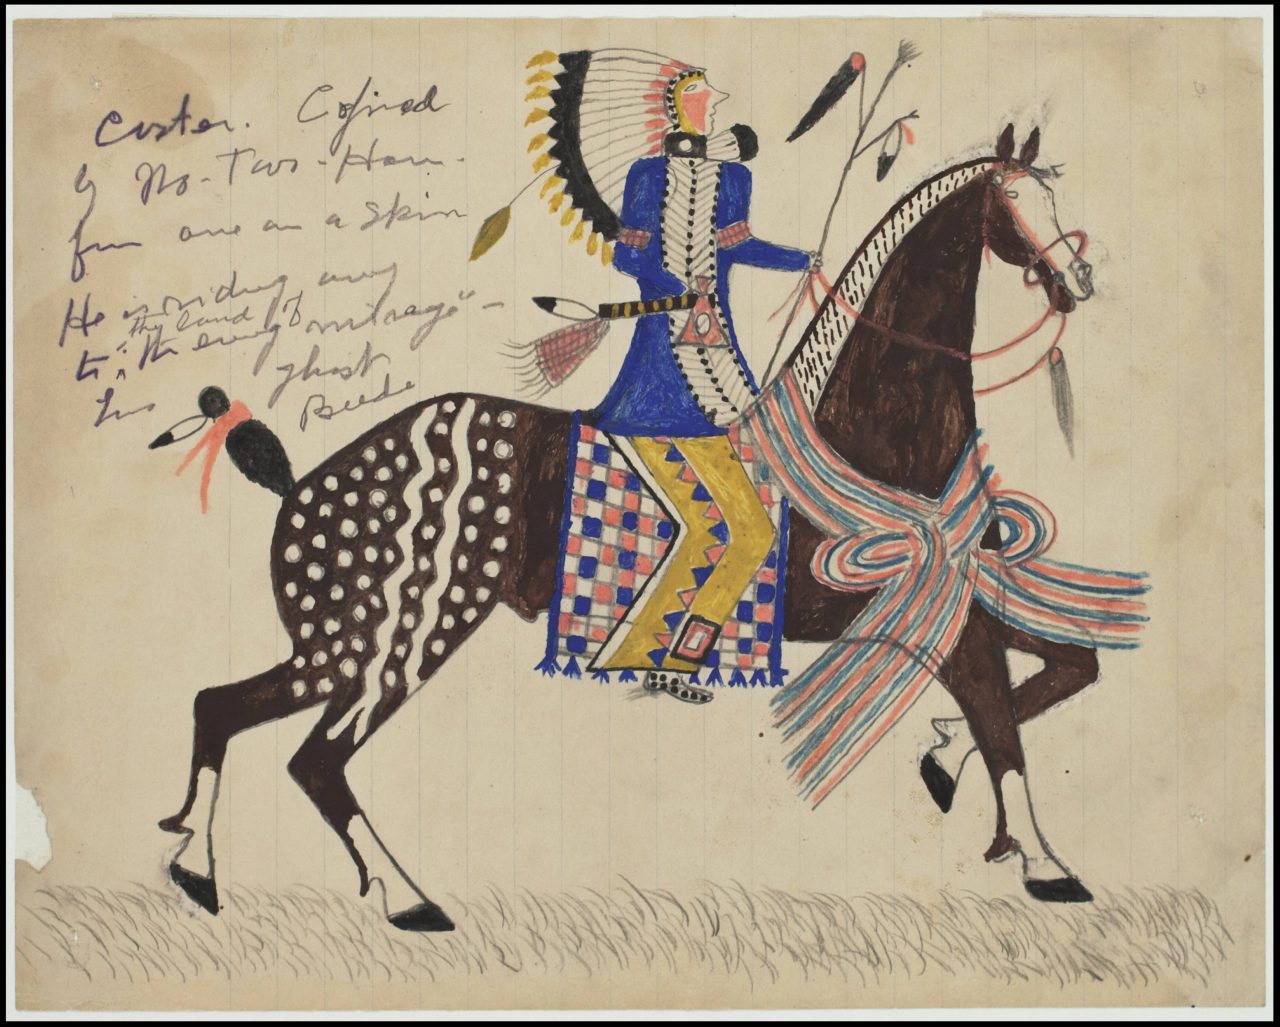 Custer. Copied
by No-Two-Horn.
from one on a skin
He is riding away
the land of
to "the every mirage" -
his ghost
Beede